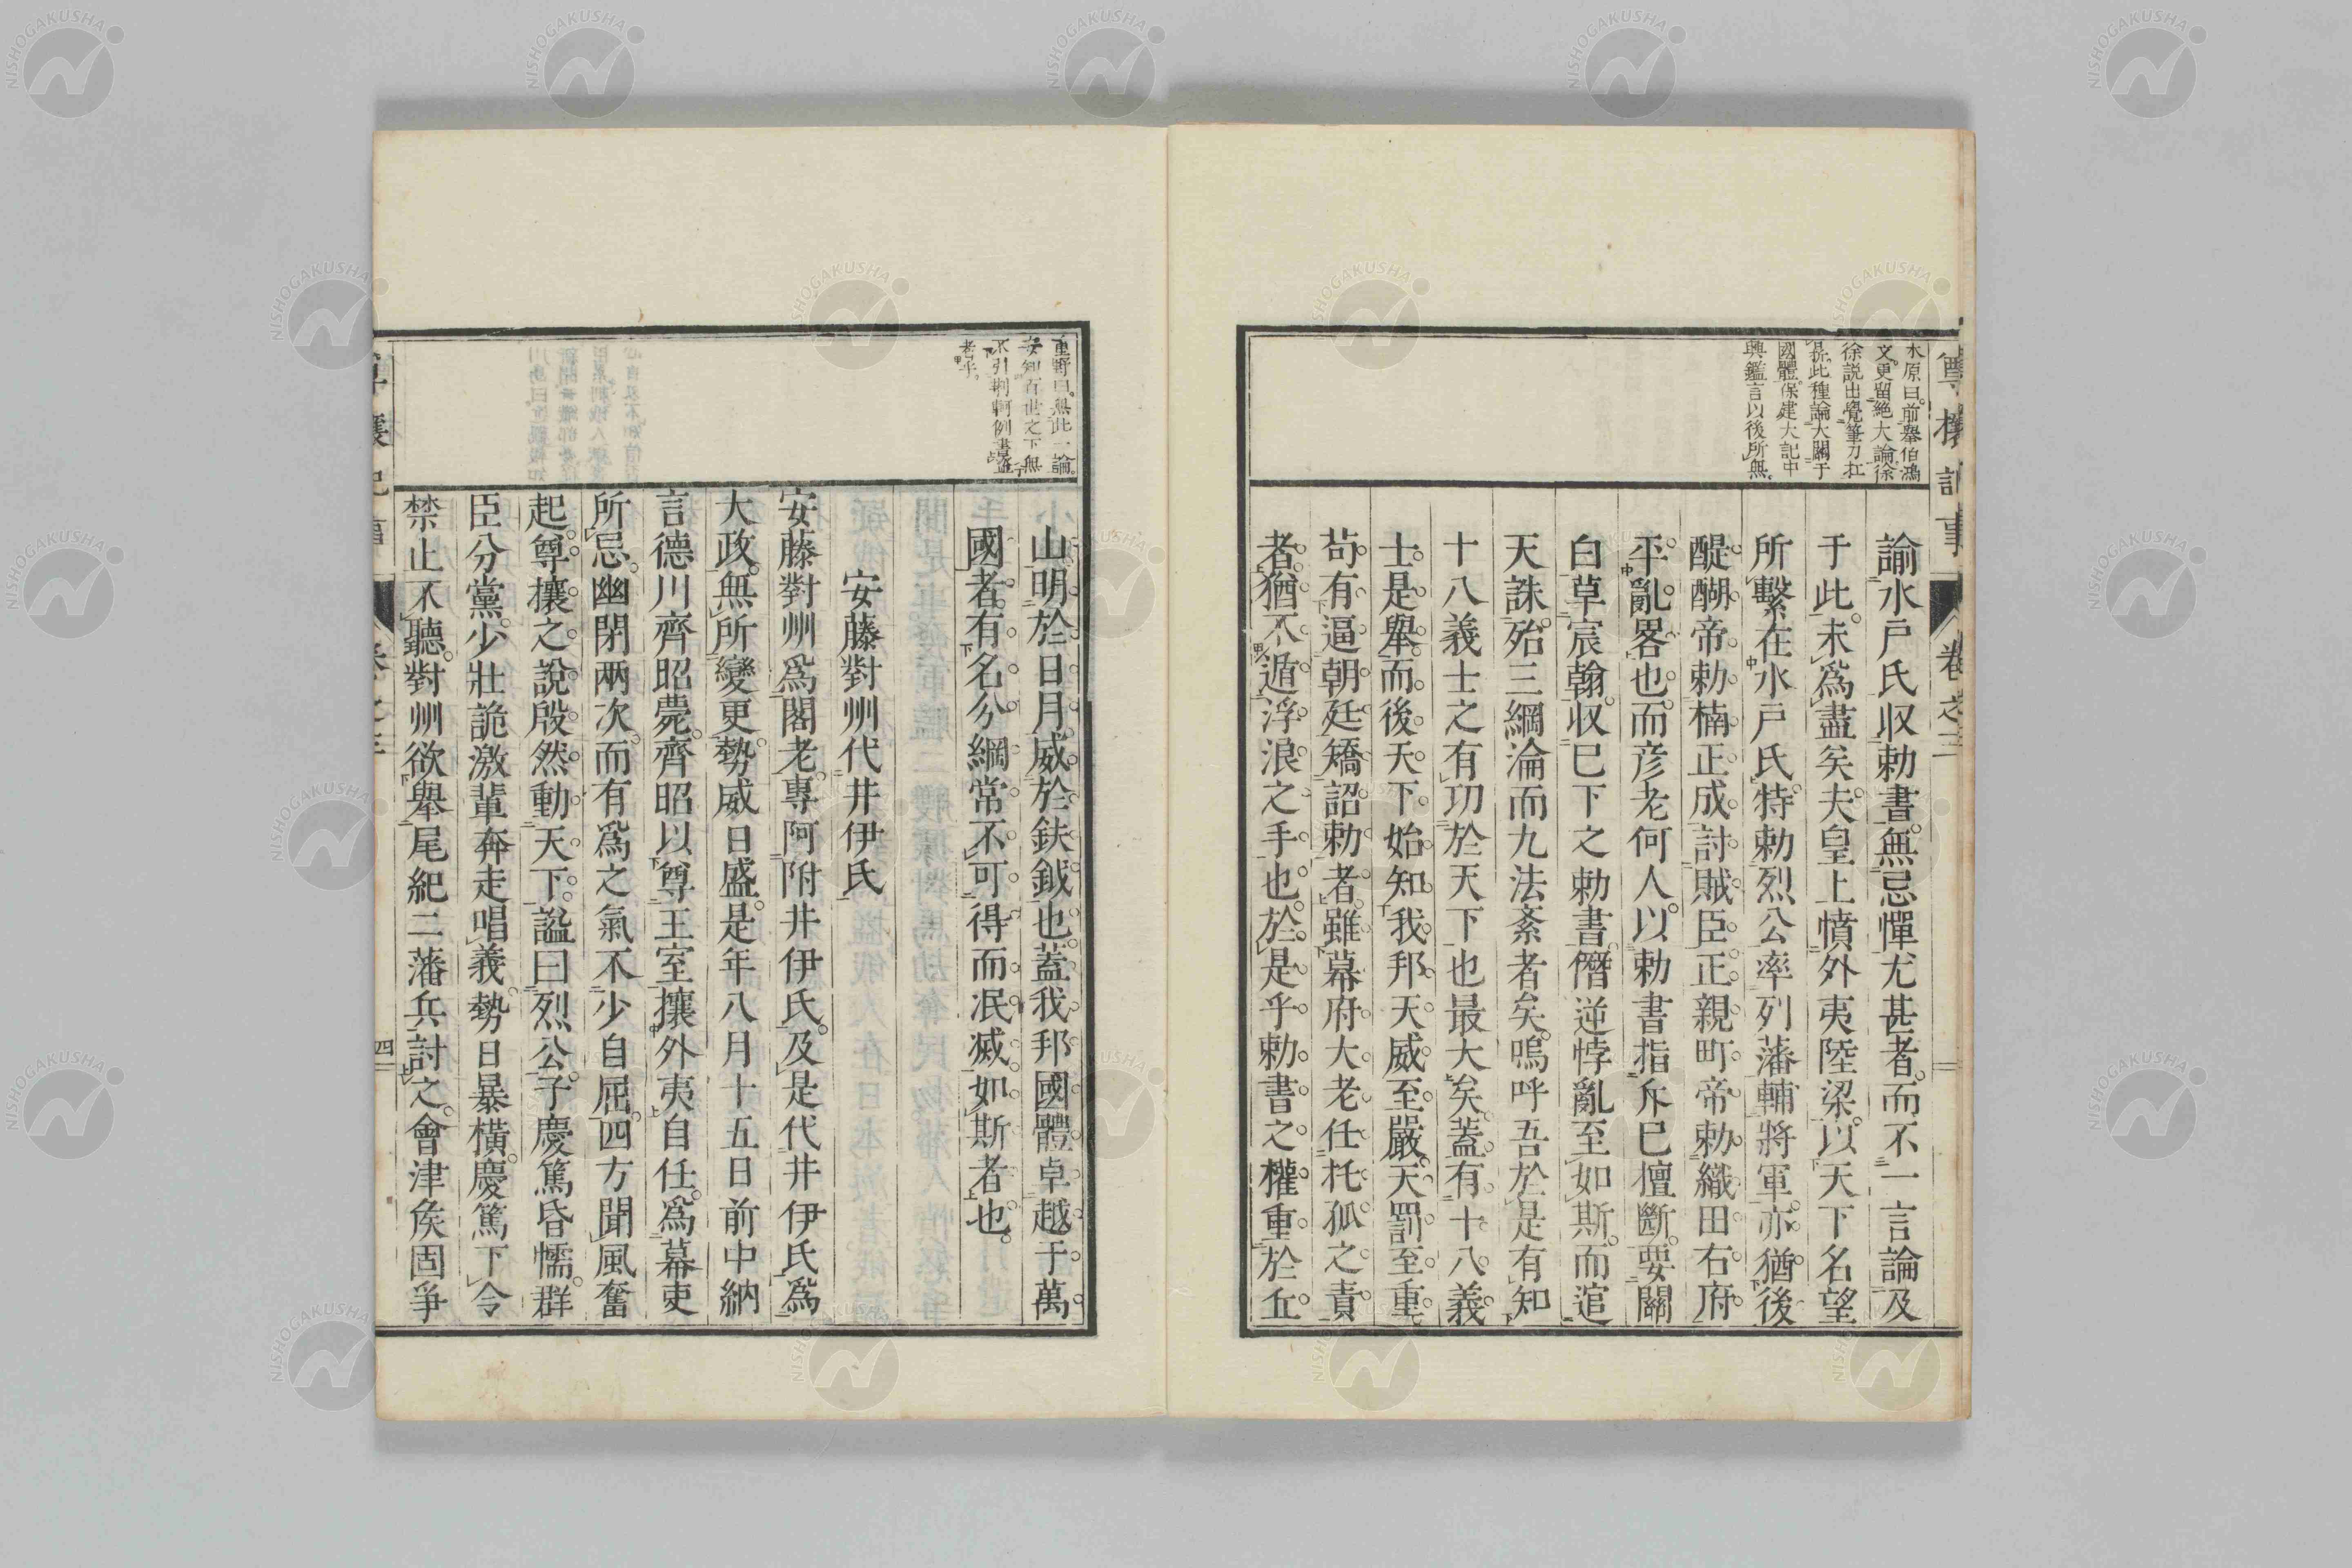 尊攘記事
卷之三
木原曰。前舉伯鴻
文。更留絶大論。徐
徐説出。覺筆力扛
振。此種論大關于
國體。保建大記中
興鑑言以後所無。
諭水戸氏収勅書。無忌憚尤甚者。而不一言論及
于此。未爲盡矣。夫皇上憤外夷陸梁。以天下名望
所繫在水戸氏。特勅烈公率列藩輔將軍。亦猶後
醍醐帝勅楠正成討賊臣。正親町帝勅織田右府
平亂畧也。而彦老何人。以勅書指斥巳檀斷。要關
白草宸翰。収巳下之勅書。僭逆悖亂至如斯。而逭
天誅。殆三綱淪而九法紊者矣。嗚呼吾於是有知
十八義士之有功於天下也最大矣。蓋有十八義
士。是舉而後天下始知我邦天威至嚴。天罰至重。
苟有逼朝廷矯詔勅者。雖幕府大老任托孤之責
者。猶不遁浮浪之手也。於是乎勅書之權重於丘
重野曰。無此一論。
安知百世之下無
不引荆軻例書盜
者乎。
山。明於日月。威於鈇鉞也。蓋我邦國體卓越于萬
國者。有名分綱常不可得而泯滅如斯者也。
安藤對州代井伊氏
安藤對州爲閣老。專阿附井伊氏。及是代井伊氏爲
大政。無所變更。勢威日盛。是年八月十五日前中納
言德川齊昭薨。齊昭以尊王室攘外夷自任。爲幕吏
所忌。幽閉兩次。而有爲之氣不少自屈。四方聞風奮
起。尊攘之説。殷然動天下。謚曰烈公。子慶篤昏懦。群
臣分黨。少壯詭激輩奔走唱義。勢日暴横。慶篤下令
禁止不聽。對州欲舉尾紀二藩兵討之。會津侯固爭
四